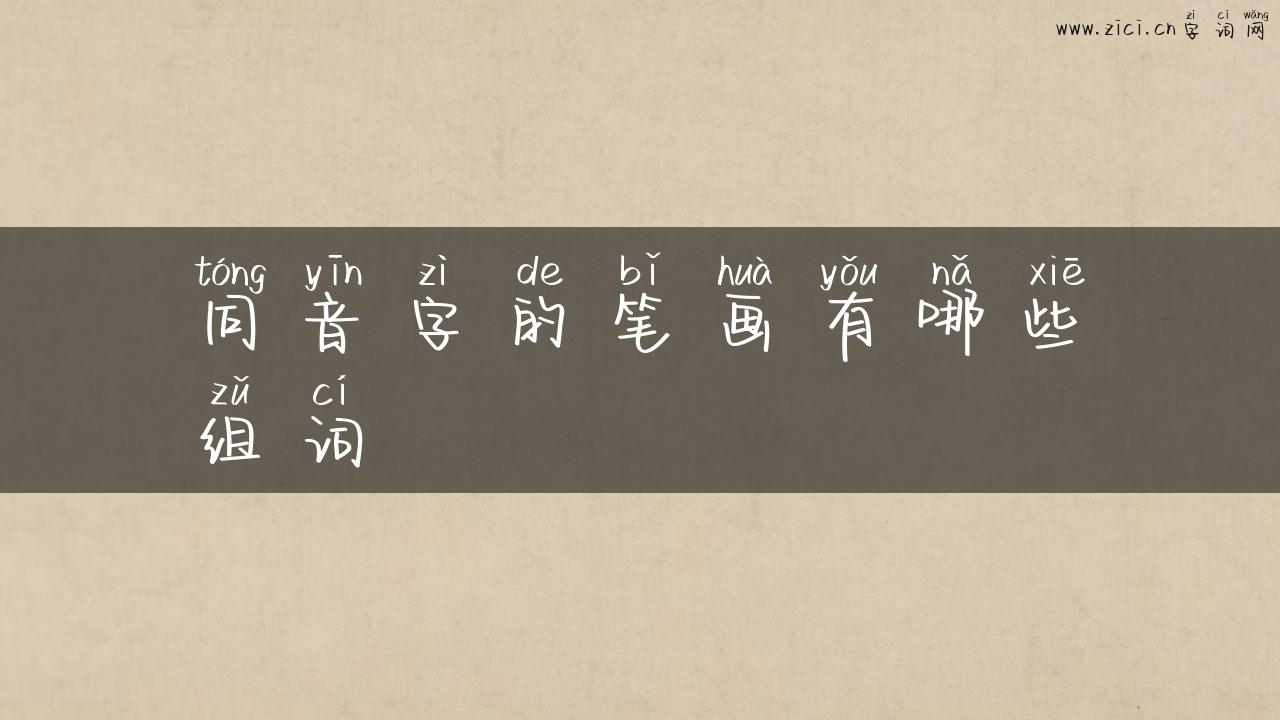 zì cí wǎng
www.zici.cn 字词网
tóng yīn zì de bǐ huà yǒu nǎ xiē
同音字的笔画有哪些
zǔ cí
组词